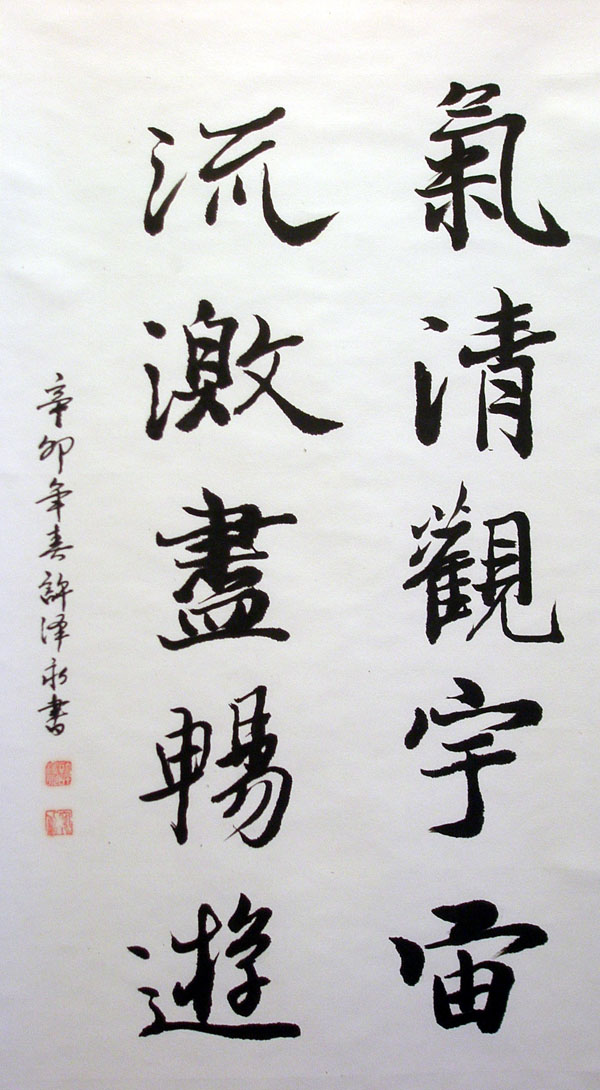 氣清觀宇宙
流激盡暢遊
辛卯年春許澤永書